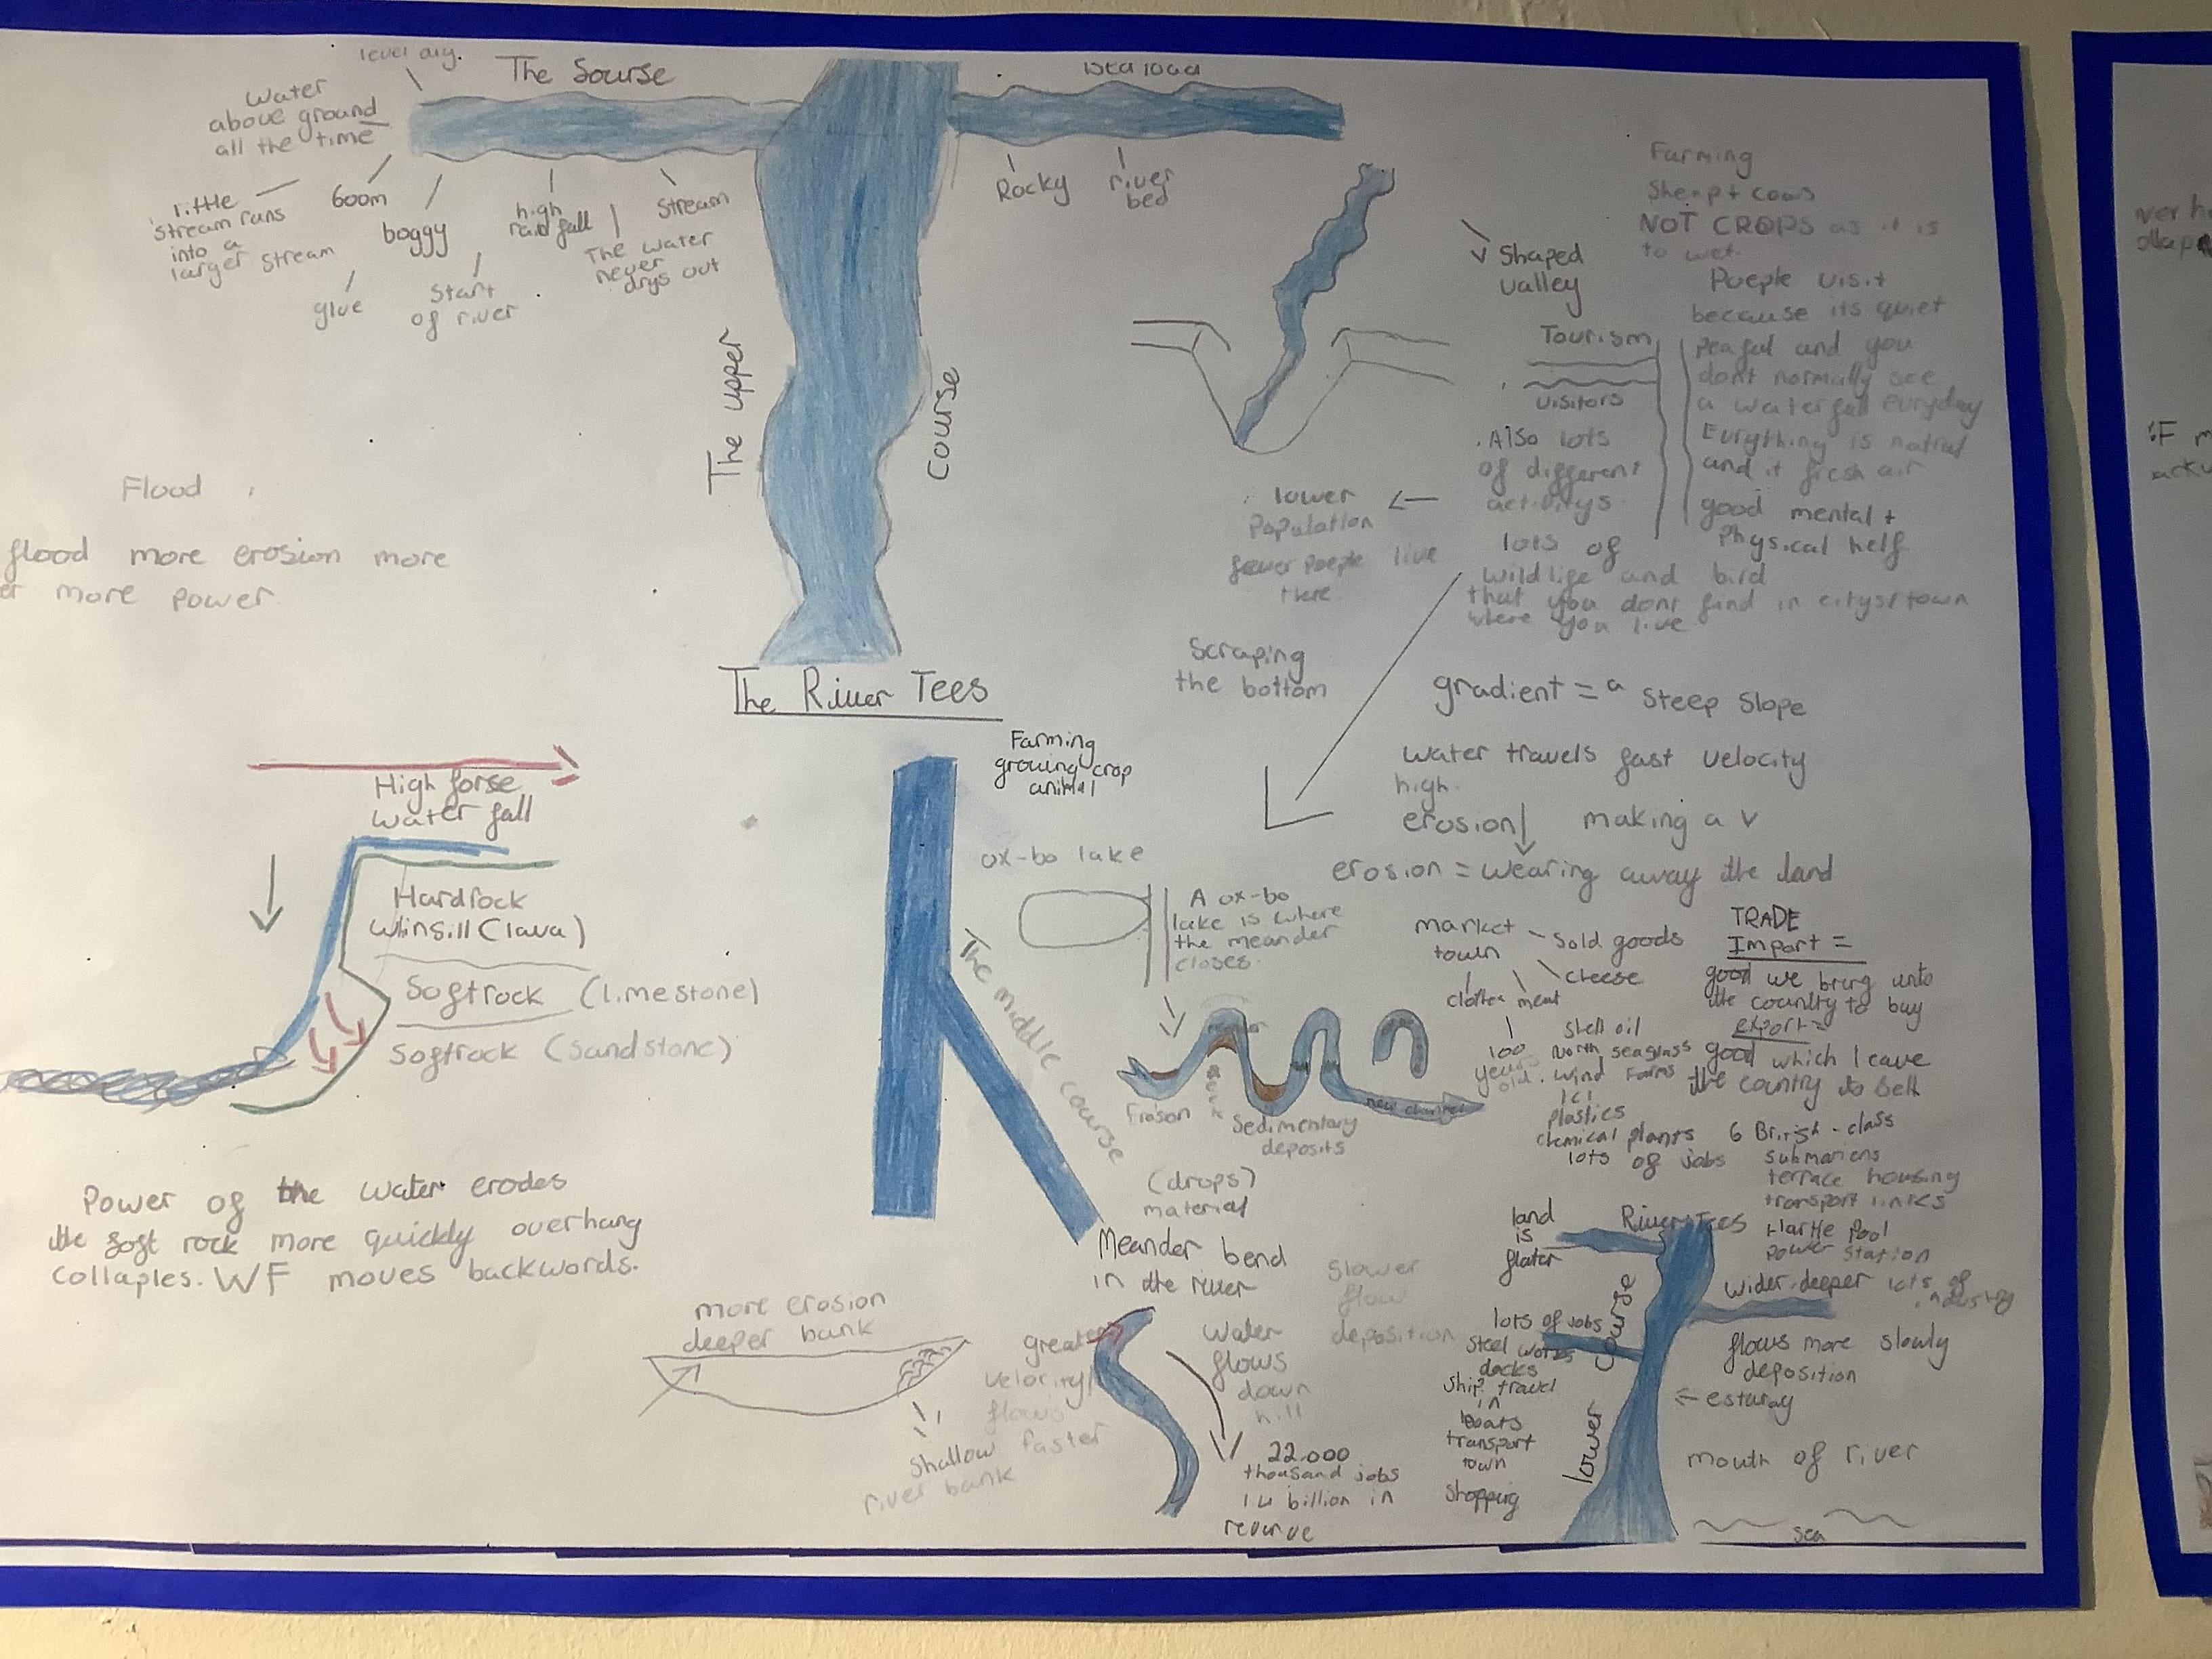 level dry.
The Sourse
Water
above ground
all the time
little
stream runs
into a
larger stream
600m
boggy
glue
Start
of river
high
rainfall
The water
never
drys out
Stream
Rocky
river
bed
The upper
course
V Shaped
valley
Farming
Sheep + cows
NOT CROPS as it is
to wet.
Tourism
visitors
Poeple visit
because its quiet
peaful and you
dont normally see
a waterfall euryday
Eurything is natral
and it fresh air
good mental +
Physical helf
.Also lots
of different
activitys
lower
Population
fewer poeple live
there.
lots of
wildlife and bird
that you dont find in citys/town
where you live
Scraping
the bottom
gradient = a steep slope
water travels fast velocity
high.
erosion making a v
erosion = wearing away the land
Flood
flood more erosion more
more power
The River Tees
High forse
water fall
Hardrock
Whinsill (lava)
Softrock (limestone)
Softrock (sandstone)
Power of the water erodes
the soft rock more quickly overhang
collaples. WF moves backwords.
Farming
growing crop
animal
The middle course
ox-bo lake
A ox-bo
lake is where
the meander
closes.
neck
Sedimentary
deposits
new channel
(drops)
material
Meander bend
in the river
more erosion
deeper bank
Shallow
river bank
greater
velocity
flows
faster
Water
flows
down
hill
Slower
flow
deposition
22.000
thousand jobs
billion in
market
town
sold goods
cheese
meat
100
years
old.
TRADE
Import =
good we bring unto
the country to buy
export =
good which leave
the country to sell
Shell oil
North sea gass
wind farms
ICI
plastics
chemical plants
lots of jobs
6 British - class
submariens
terrace housing
transport links
Hartle Pool
power station
River Tees
land
is
flater
wider, deeper
lots of
industry
flows more slowly
deposition
lower course
lots of jobs
steel works
docks
ship travel
in
boats
transport
town
shopping
← esturay
mouth of river
sea